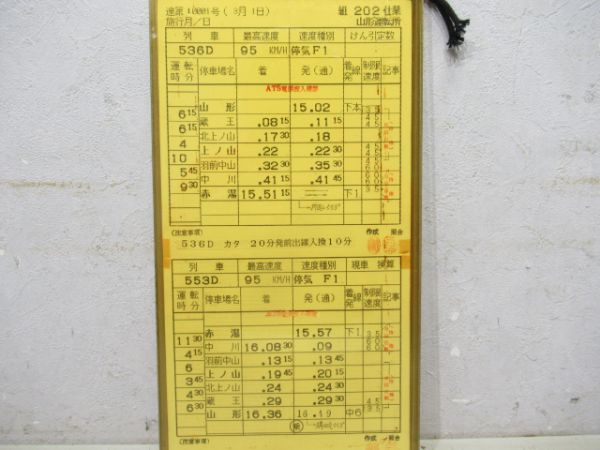 達第10001号(3月1日) 組 202仕業
施行月/日
列車 最高速度 速度種別 けん引定数
536D 95 KM/H 停気F1
運転時分 停車場名 着 発(通) 着発線 制限速度 記事
山形 15.02 下本
6 15 蔵王 .08 15 .11 15
6 15 北上ノ山 .17 30 .18
4 上ノ山 .22 .22 30
10 羽前中山 .32 30 .35 30
5 45 中川 .41 15 .41 45
9 30 赤湯 15.51 15 下1
(注意事項) 作成 照合
536D カタ 20分発前出線入換10分
列車 最高速度 速度種別 現車 換算
553D 95 KM/H 停気F1
運転時分 停車場名 着 発(通) 着発線 制限速度 記事
赤湯 15.57 下1
11 30 中川 16.08 30 .09
4 15 羽前中山 .13 15 .13 45
6 上ノ山 .19 45 .20 15
3 45 北上ノ山 .24 .24 30
4 30 蔵王 .29 .29 30
6 30 山形 16.36 中6
(注意事項) 作成 照合